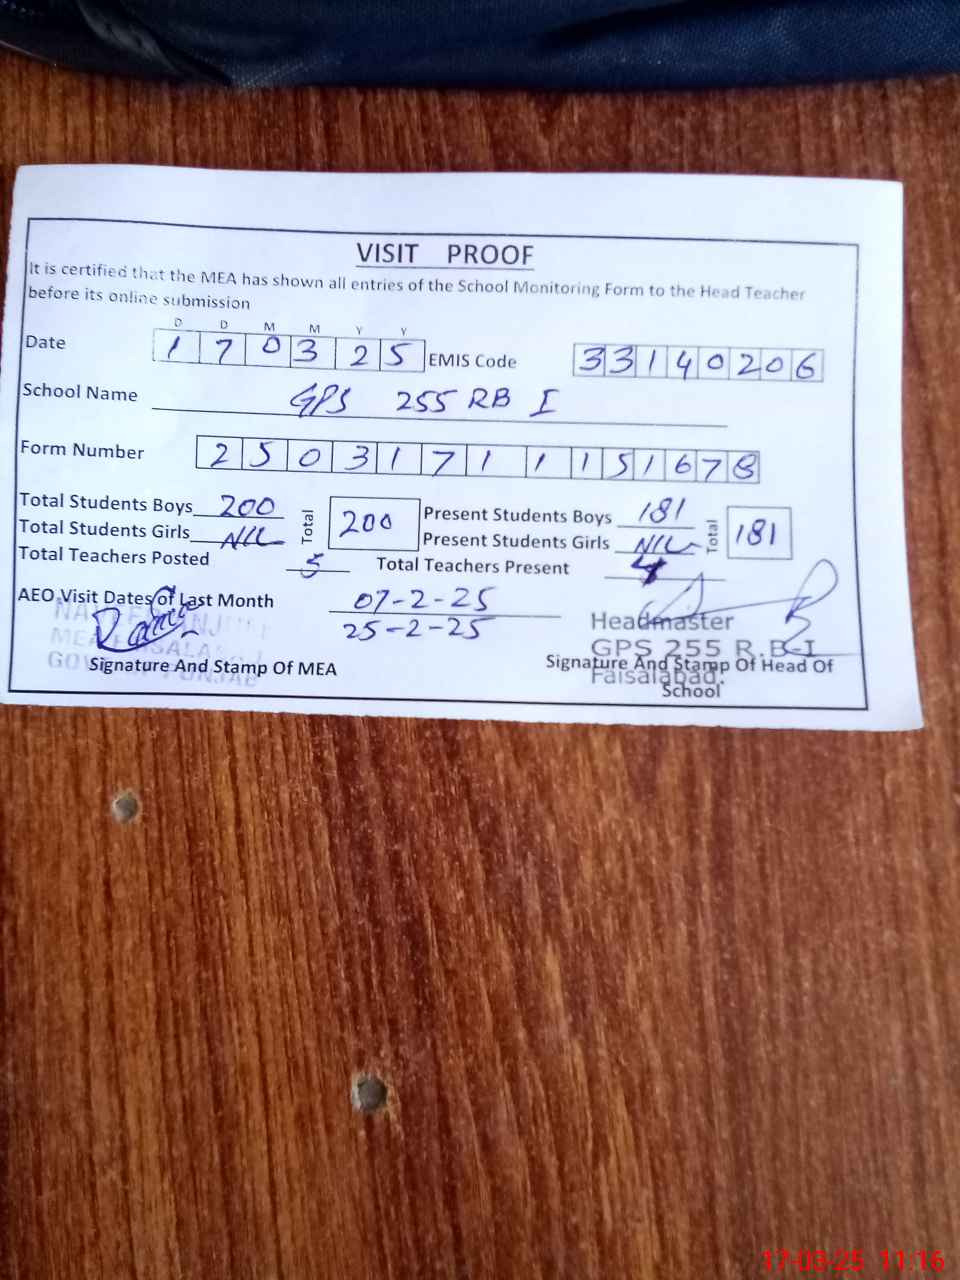 VISIT PROOF
It is certified that the MEA has shown all entries of the School Monitoring Form to the Head Teacher
before its online submission
D D M M Y Y
Date 1 7 0 3 2 5 EMIS Code 3 3 1 4 0 2 0 6
School Name GPS 255 RB I
Form Number 2 5 0 3 1 7 1 1 1 5 1 6 7 8
Total Students Boys 200 Total 200 Present Students Boys 181 Total 181
Total Students Girls NIL Present Students Girls NIL
Total Teachers Posted 5 Total Teachers Present 4
AEO Visit Dates of Last Month 07-2-25
25-2-25
Headmaster
GPS 255 R.B-I
Faisalabad.
Signature And Stamp Of MEA
Signature And Stamp Of Head Of
School
17-03-25 11:16